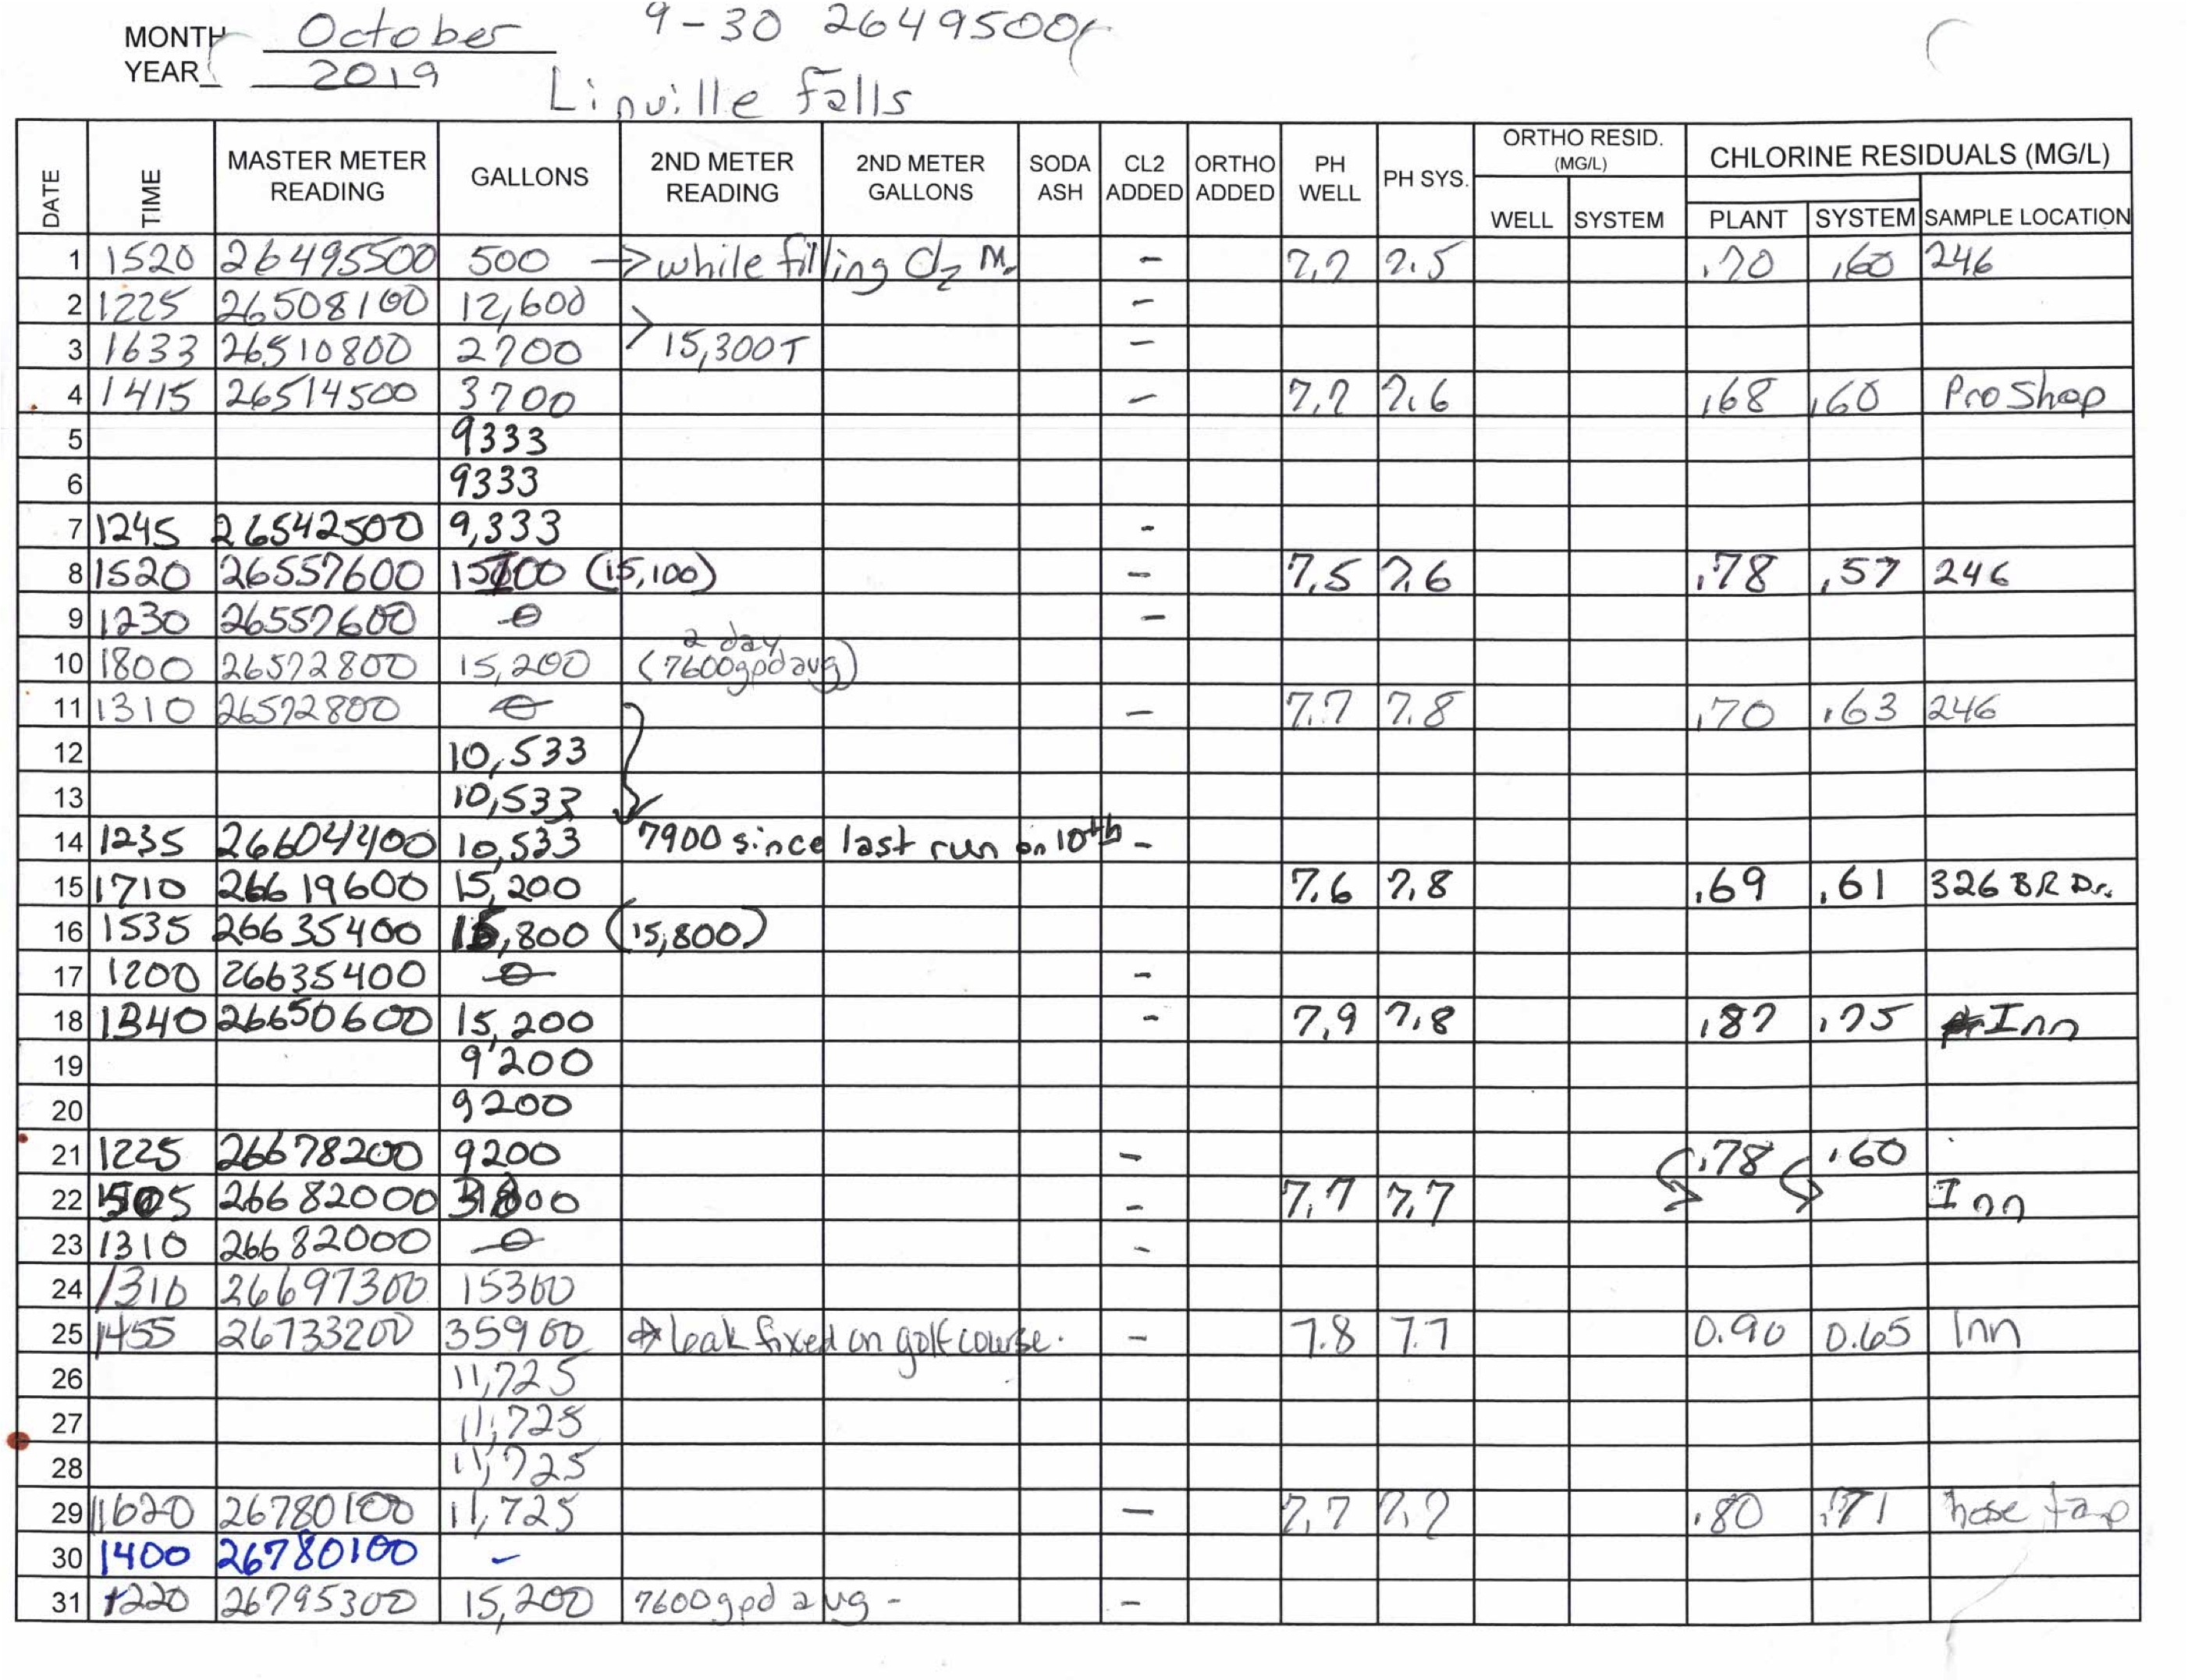 MONTH October 9-30 26495000
YEAR 2019
Linville Falls
DATE TIME MASTER METER READING GALLONS 2ND METER READING 2ND METER GALLONS SODA ASH CL2 ADDED ORTHO ADDED PH WELL PH SYS. ORTHO RESID. (MG/L) WELL SYSTEM CHLORINE RESIDUALS (MG/L) PLANT SYSTEM SAMPLE LOCATION
1 1520 26495500 500 → while filling Cl2 M. - 7.7 7.5 .70 .60 246
2 1225 26508100 12,600 -
3 1633 26510800 2700 > 15,300T -
4 1415 26514500 3700 - 7.7 7.6 .68 .60 Pro Shop
5 9333
6 9333
7 1245 26542500 9,333 -
8 1520 26557600 15100 (15,100) - 7.5 7.6 .78 .57 246
9 1230 26557600 0 -
10 1800 26572800 15,200 2 day (7600gpd avg)
11 1310 26572800 0 - 7.7 7.8 .70 .63 246
12 10,533
13 10,533
14 1235 26604400 10,533 7900 since last run on 10th -
15 1710 26619600 15,200 7.6 7.8 .69 .61 326 BR Dr.
16 1535 26635400 15,800 (15,800)
17 1200 26635400 0 -
18 1340 26650600 15,200 - 7.9 7.8 .87 .75 Inn
19 9200
20 9200
21 1225 26678200 9200 - .78 .60
22 1505 26682000 3800 - 7.7 7.7 Inn
23 1310 26682000 0 -
24 1310 26697300 15300
25 1455 26733200 35900 → leak fixed on golf course. - 7.8 7.7 0.90 0.65 Inn
26 11,725
27 11,725
28 11,725
29 1620 26780100 11,725 - 7.7 7.7 .80 .71 hose tap
30 1400 26780100 -
31 1220 26795300 15,200 7600gpd avg - -